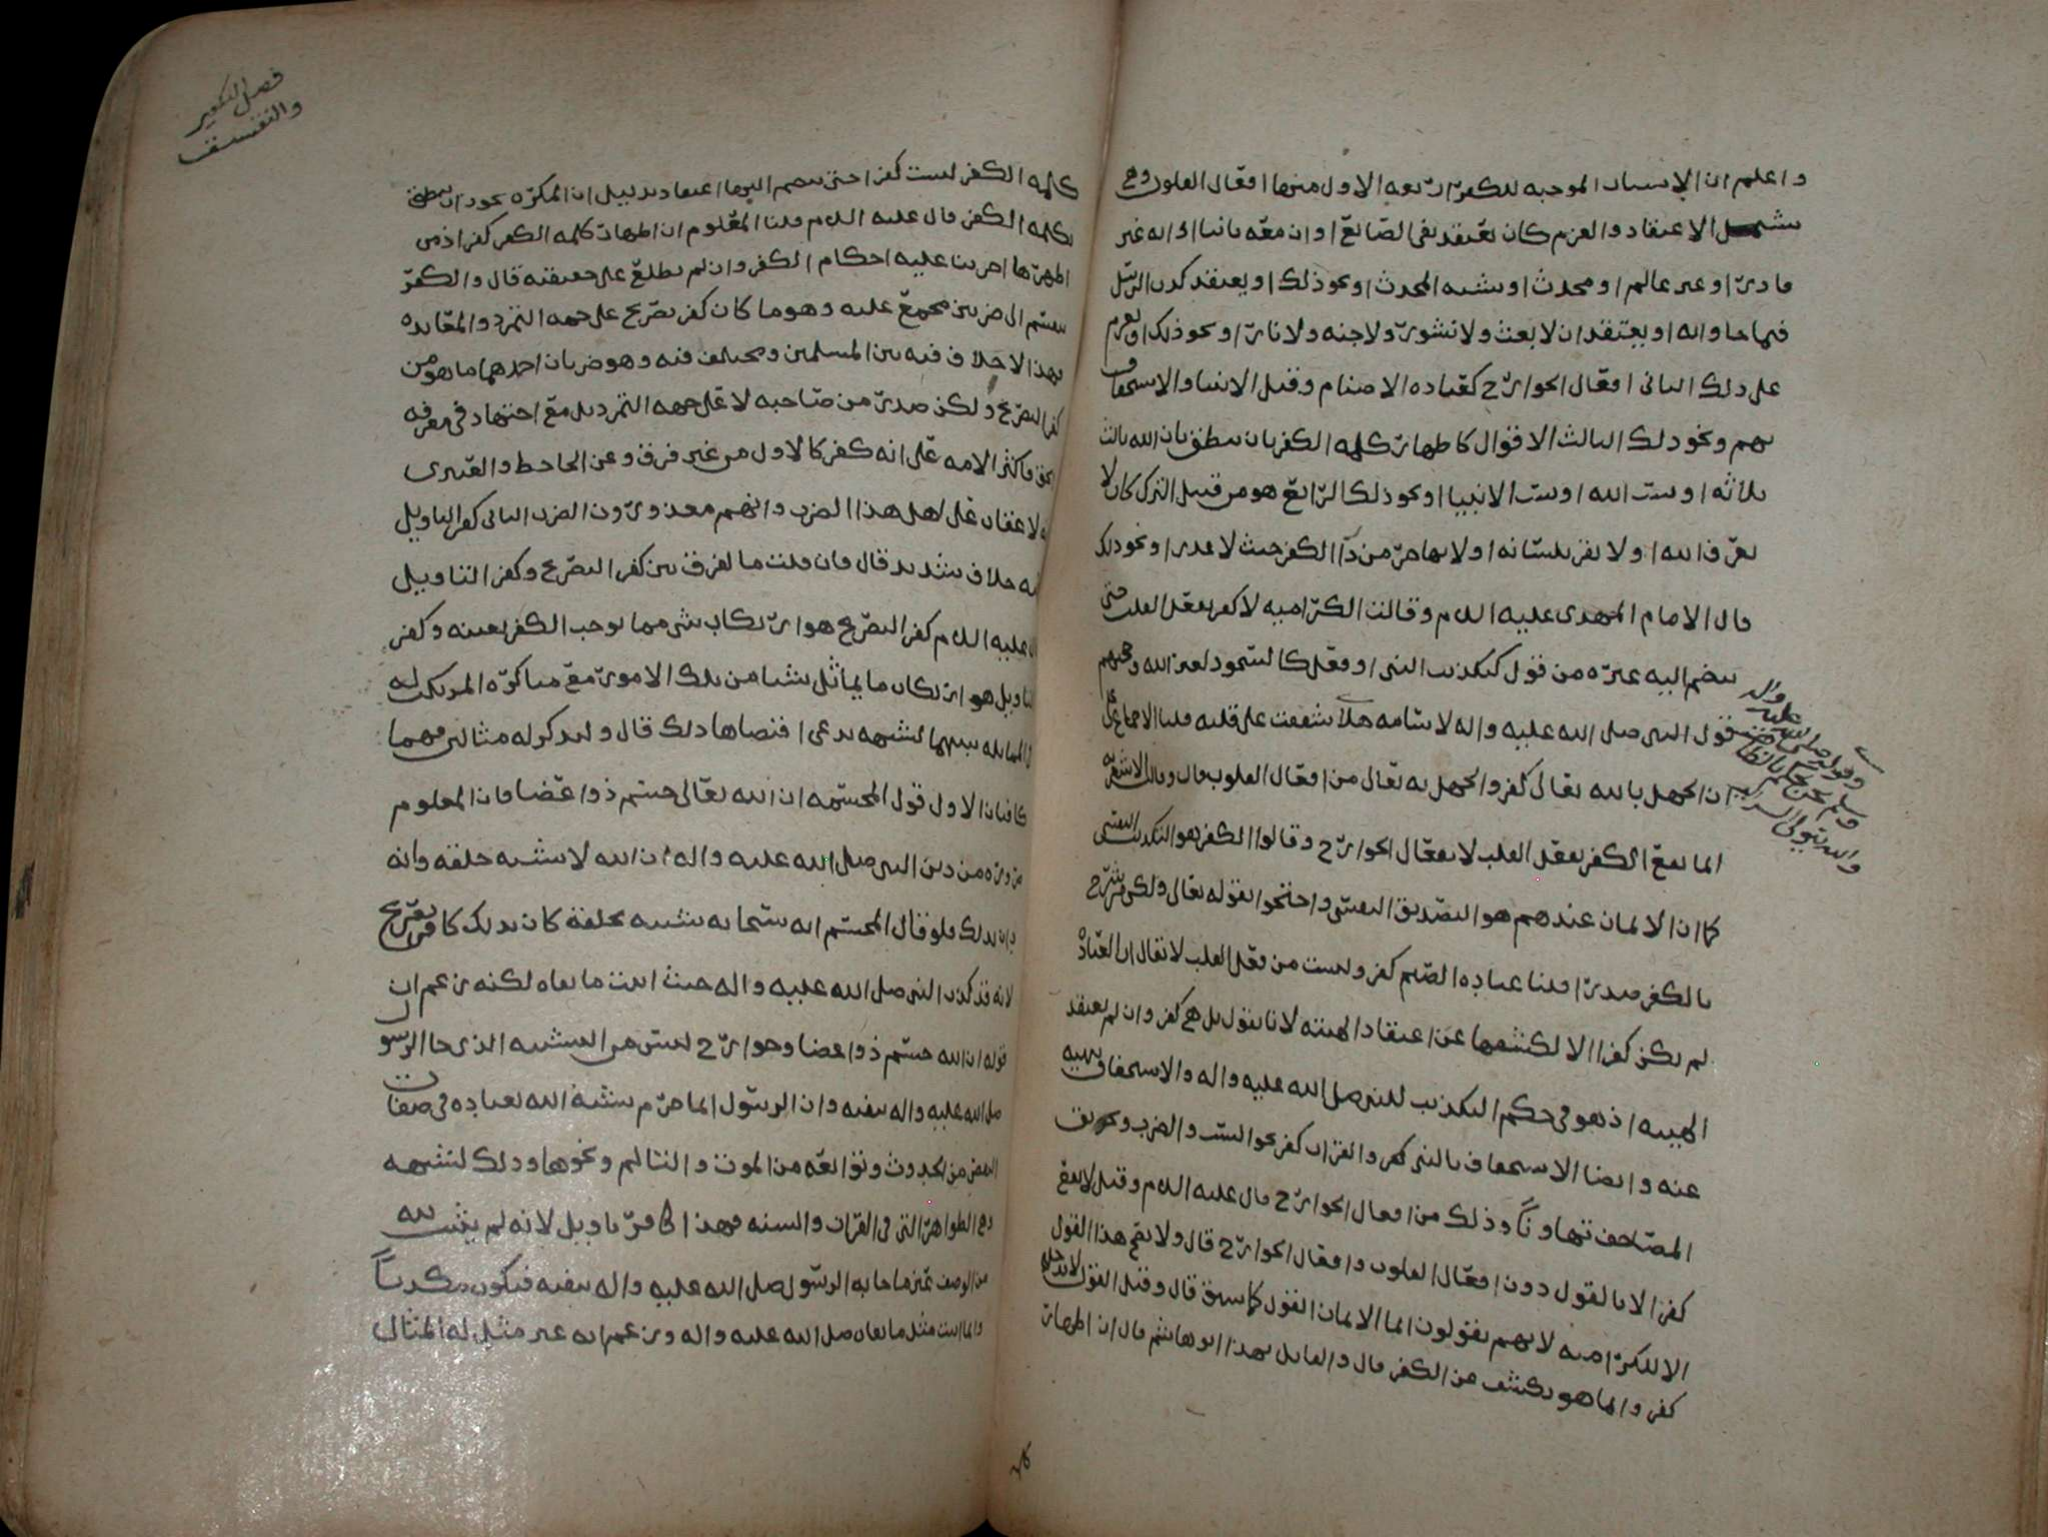 واعلم ان الاسباب الموجبه للكفر اربعه الاول منها افعال القلوب وهي
تشمل الاعتقاد والعزم كان يعتقد نفي الصانع او ان معه ثانيا او انه غير
قادر او غير عالم او محدث او يشبه المحدث او نحو ذلك او يعتقد كذب الرسل
فيما جاوا به او يعتقد ان لا بعث ولا نشور ولا جنه ولا نار او نحو ذلك او يعزم
على ذلك الثاني افعال الجوارح كعباده الاصنام وقتل الانبيا والاستخفاف
بهم ونحو ذلك الثالث الاقوال كاظهار كلمه الكفر بان ينطق بان الله ثالث
ثلاثه او سب الله او سب الانبيا او نحو ذلك الرابع هو من قبيل الترك كان لا
يعرف الله او لا يقر بلسانه او لا يهاجر من دار الكفر حيث لا عذر او نحو ذلك
قال الامام المهدي عليه السلام وقالت الكراميه لا كفر بفعل القلب حتى
ينضم اليه غيره من قول كتكذيب النبي او فعل كالسجود لغير الله وحجتهم
قول النبي صلى الله عليه واله لاسامه هلا شققت على قلبه قلنا الاجماع على
ان الجهل بالله تعالى كفر والجهل به تعالى من افعال القلوب قال وقالت الاشعريه
انما يقع الكفر بفعل القلب لا بفعال الجوارح وقالوا الكفر هو التكذيب النفسي
كما ان الايمان عندهم هو التصديق النفسي واحتجوا بقوله تعالى ولكن من شرح
بالكفر صدرا قلنا عباده الصنم كفر وليست من فعل القلب لا يقال ان العباده
لم يكن كفرا الا لكشفها عن اعتقاد الهيته لانا نقول بل هي كفر وان لم يعتقد
الهيته اذ هو في حكم التكذيب للنبي صلى الله عليه واله والاستخفاف بنهيه
عنه وايضا الاستخفاف بالنبي كفر والقران كفر نحو السب والضرب وتحريق
المصاحف تهاونا وذلك من افعال الجوارح قال عليه السلام وقيل لا يقع
كفر الا بالقول دون افعال القلوب وافعال الجوارح قال ولا يصح هذا القول
الا للكراميه لانهم يقولون انما الايمان القول كما سبق قال وقيل القول لا يدخله
كفر وانما هو يكشف عن الكفر قال والقايل بهذا ابو هاشم قال ان اظهار
وقوله صلى الله عليه واله
وسلم نحن نحكم بالظاهر
والله يتولى السراير
فصل التكفير
والتفسيق
كلمه الكفر ليست كفرا حتى ينضم اليها اعتقاد بدليل ان المكره يجوز ان ينطق
بكلمه الكفر قال عليه السلام قلنا المعلوم ان اظهار كلمه الكفر كفر اذ من
اظهرها اجرينا عليه احكام الكفر وان لم نطلع على حقيقته قال والكفر
ينقسم الى ضربين مجمع عليه وهو ما كان كفر تصريح على جهه التمرد والمعانده
فهذا لا خلاف فيه بين المسلمين ومختلف فيه وهو ضربان احدهما ما هو من
كفر التصريح ولكن صدر من صاحبه لا على جهه التمرد بل مع اجتهاد في معرفه
الحق فاكثر الامه على انه كفر كالاول من غير فرق وعن الجاحظ والعنبري
لا عقاب على اهل هذا الضرب وانهم معذورون الضرب الثاني كفر التاويل
فيه خلاف شديد قال فان قلت ما الفرق بين كفر التصريح وكفر التاويل
قال عليه السلام كفر التصريح هو ارتكاب شي مما يوجب الكفر بعينه وكفر
التاويل هو ارتكاب ما يماثل شيا من تلك الامور مع مناكره المرتكب له
في المماثله بينهما لشبهه يدعي اقتضاها ذلك قال ولنذكر له مثالين فهما
كافيان الاول قول المجسمه ان الله تعالى جسم ذو اعضا فان المعلوم
ضروره من دين النبي صلى الله عليه واله ان الله لا يشبه خلقه وانه
يدين بذلك فلو قال المجسم انه سبحانه يشبه بخلقه كان بذلك كافر تصريح
لانه قد كذب النبي صلى الله عليه واله حيث اثبت ما نفاه لكنه زعم ان
قوله ان الله جسم ذو اعضا وجوارح ليس من التشبيه الذي جا الرسول
صلى الله عليه واله بنفيه وان الرسول انما حرم تشبيه الله بعباده في صفات
النقص من الحدوث وتوابعه من الموت والتالم ونحوها وذلك لشبهه
وهي الظواهر التي في القران والسنه فهذا كافر تاويل لانه لم يثبت لله
من الوصف عين ما جا به الرسول صلى الله عليه واله بنفيه فيكون مكذبا
وانما اثبت مثل ما نفاه صلى الله عليه واله وزعم انه غير مثل له المثال